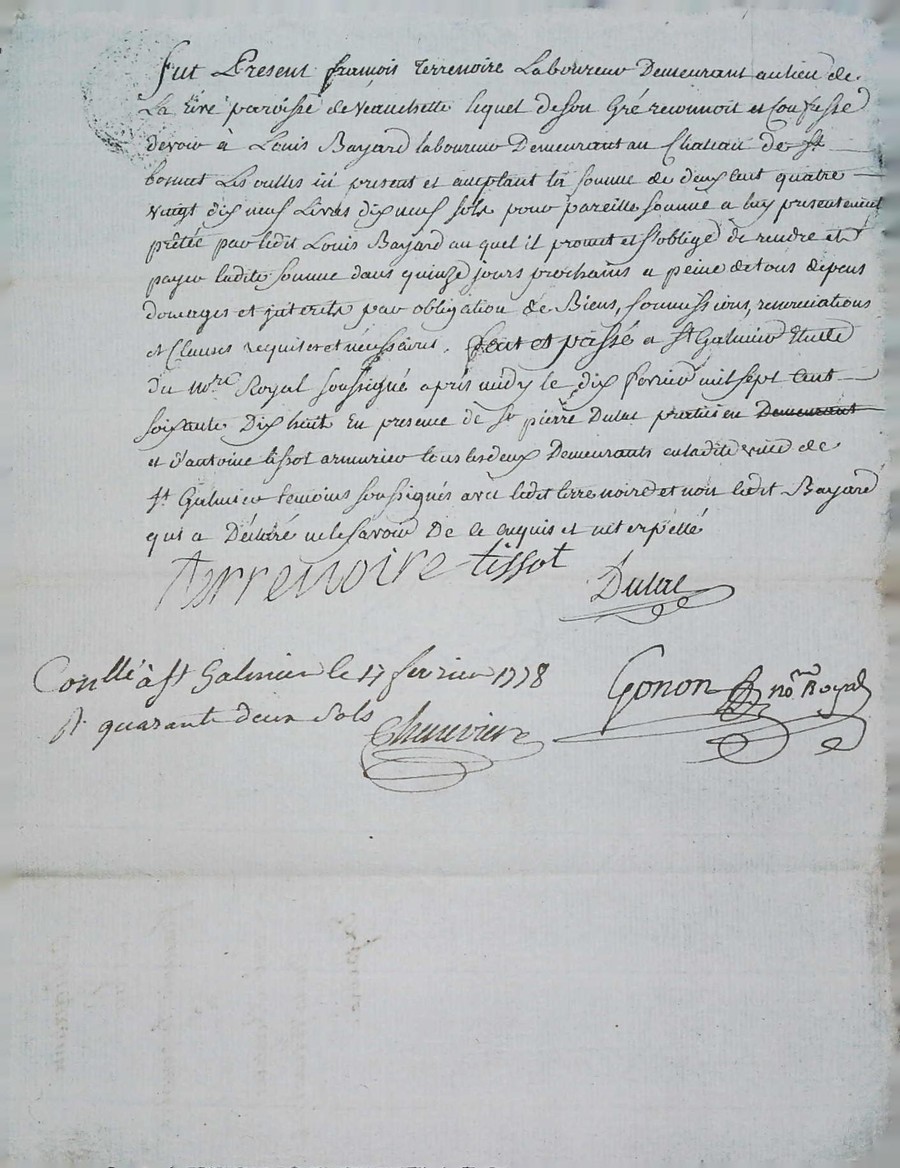 fut Present françois terrenoire Laboureur Demeurant au lieu de
La rive paroisse de veauchette lequel deson Gré reconnoit et Confesse
devoir à Louis Bayard laboureur Demeurant au Chateau de st
bonnet Les oulles ici present et aceptant la somme de deux cent quatre
vingt dix neuf Livres dix neuf sols pour pareille somme a luy presentement
prêtée par ledit Louis Bayard au quel il promet et s'oblige de rendre et
payer ladite somme dans quinze jours prochains a peine de tous depens
domages et interets par obligation de Biens, soumissions, renonciations
et Clauses requises et nécessaires. fait et passé a st Galmier Etude
du nore Royal soussigné après midy le dix fevrier mil sept cent
soixante Dix huit En presence de sr pierre Dulac praticien Demeurant
et d'antoine tissot armurier tous les deux Demeurants en ladite ville de
st Galmier temoins soussignés avec ledit terrenoire et non ledit Bayard
qui a Déclaré ne le savoir De ce enquis et interpellé
terrenoire tissot
Dulac
Conllé à st Galmier le 17 fevrier 1778
Rt quarante deux sols
Gonon no.re Royal
Chenevier